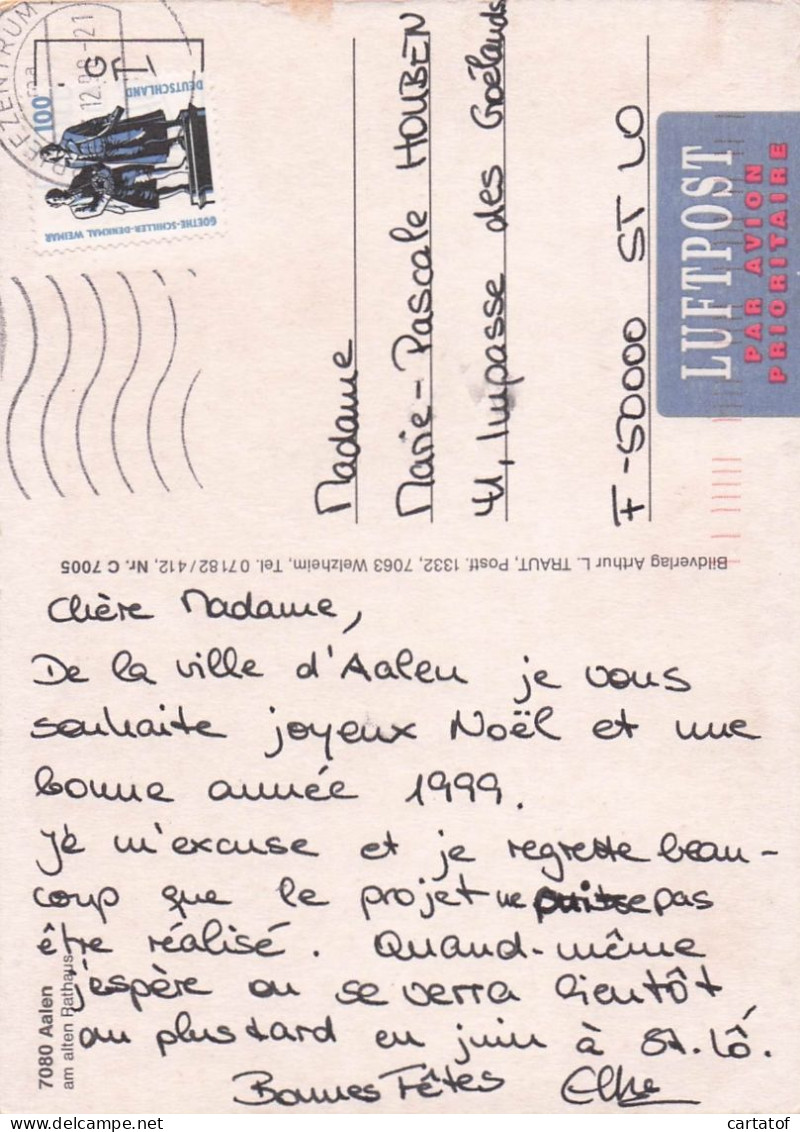 BRIEFZENTRUM
12.98-21
100
DEUTSCHLAND
GOETHE-SCHILLER-DENKMAL WEIMAR
LUFTPOST
PAR AVION
PRIORITAIRE
Madame
Marie-Pascale HOUBEN
41, Impasse des Goëlands
F-50000 ST LO
Bildverlag Arthur L. TRAUT, Postf. 1332, 7063 Welzheim, Tel. 07182/412, Nr. C 7005
Chère Madame,
De la ville d'Aalen je vous
souhaite joyeux Noël et une
bonne année 1999.
Je m'excuse et je regrette beau-
coup que le projet ne puisse pas
être réalisé. Quand-même
j'espère on se verra bientôt
au plus tard en juin à St. Lô.
Bonnes Fêtes Elke
7080 Aalen
am alten Rathaus
cartatof